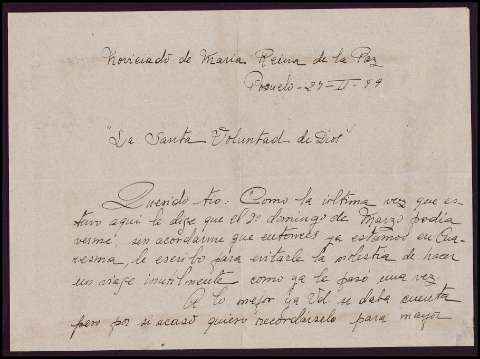 Noviciado de María Reina de la Paz
Pozuelo - 27-II-
"La Santa Voluntad de Dios"
Querido tio: Como la última vez que es-
tuvo aqui le dige que el domingo de Marzo podía
verme, sin acordarme que entonces ya estamos en Cua-
resma, le escribo para evitarle la molestia de hacer
un viage inutilmente como ya le pasó una vez
A lo mejor ya Vd se daba cuenta
pero por si acaso quiero recordarselo para mayor